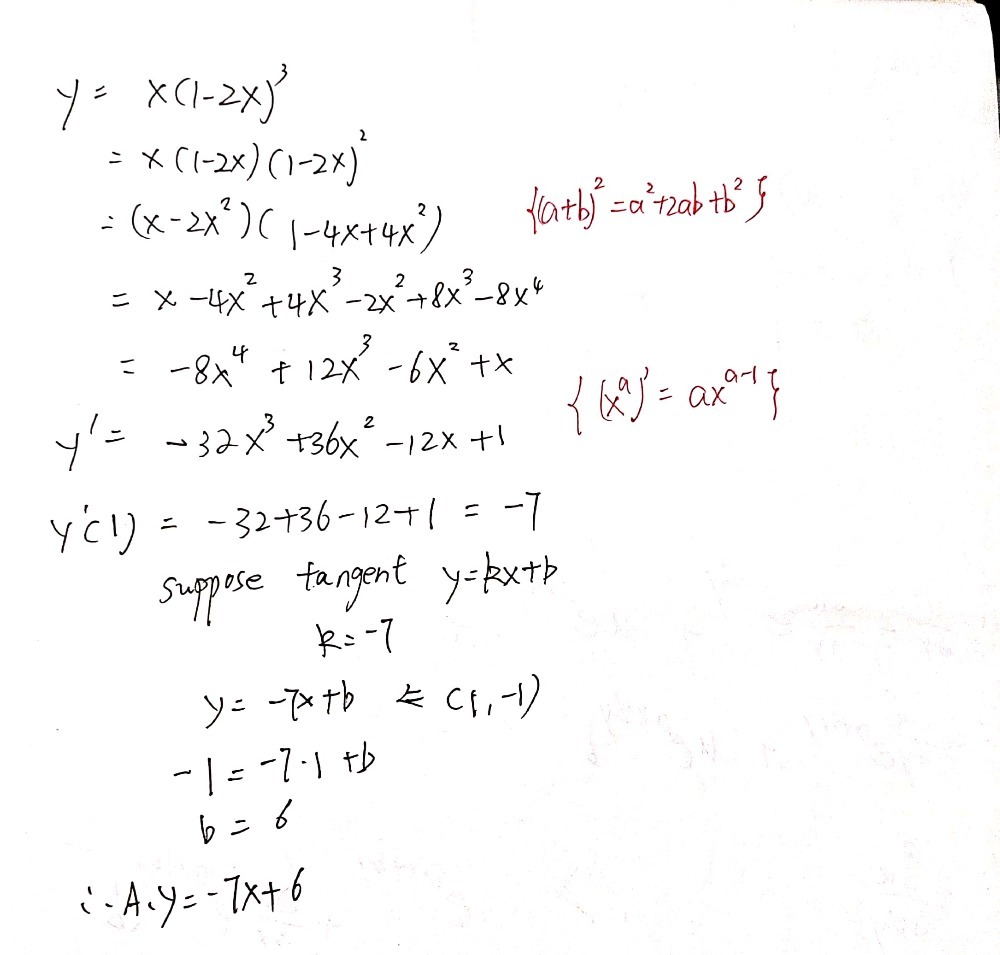 y = x(1-2x)³
= x(1-2x)(1-2x)²
= (x-2x²)(1-4x+4x²) {(a+b)²=a²+2ab+b²}
= x-4x²+4x³-2x²+8x³-8x⁴
= -8x⁴+12x³-6x²+x
y' = -32x³+36x²-12x+1 {(xᵃ)'=axᵃ⁻¹}
y'(1) = -32+36-12+1 = -7
suppose tangent y=kx+b
k=-7
y=-7x+b ⇐ (1,-1)
-1=-7·1+b
b=6
∴A.y=-7x+6